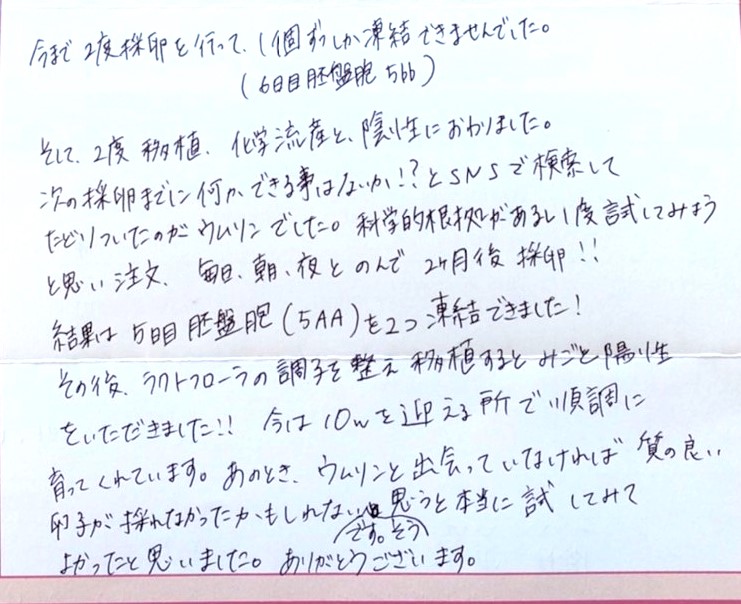 今まで2度採卵を行って、1個ずつしか凍結できませんでした。
(6日目胚盤胞 5bb)
そして、2度移植、化学流産と、陰性におわりました。
次の採卵までに何か、できる事はないか!?とSNSで検索して
たどりついたのがウムリンでした。科学的根拠があるし1度試してみよう
と思い注文、毎日、朝、夜とのんで2ヶ月後採卵!!
結果は5日目胚盤胞(5AA)を2つ凍結できました!
その後、ラクトフローラの調子を整え移植するとみごと陽性
をいただきました!! 今は10wを迎える所で順調に
育ってくれています。あのとき、ウムリンと出会っていなければ質の良い
卵子が採れなかったかもしれないです。そう思うと本当に試してみて
よかったと思いました。ありがとうございます。